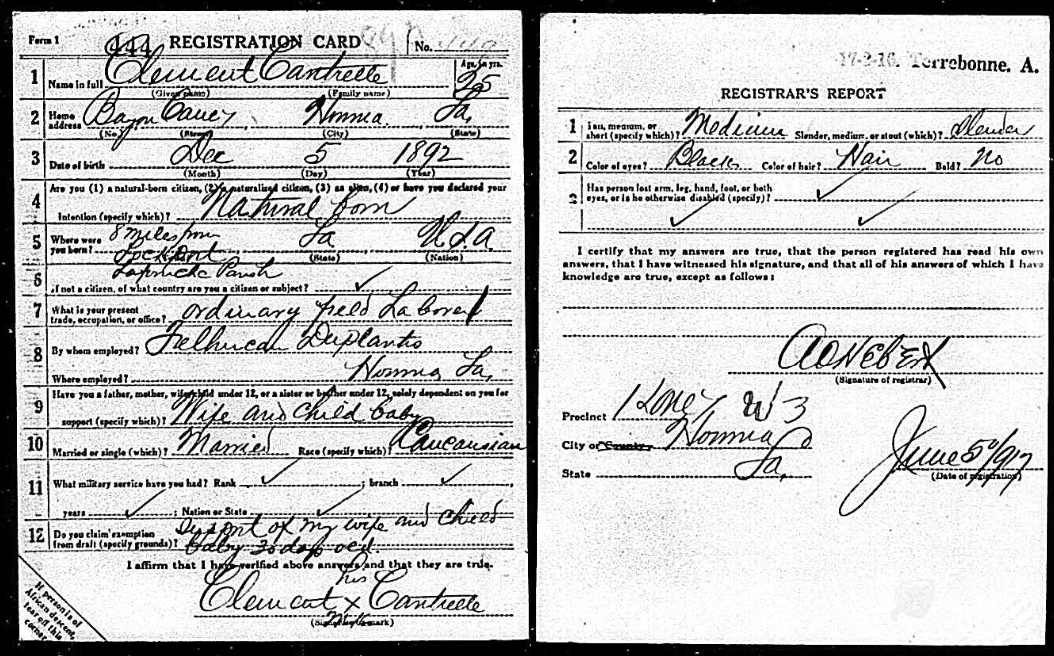 Form 1 444 REGISTRATION CARD No.
1 Name in full Clement Cantrelle Age, in yrs. 25
(Given name) (Family name)
2 Home address Bayou Houma La,
(No.) (Street) (City) (State)
3 Date of birth Dec 5 1892
(Month) (Day) (Year)
4 Are you (1) a natural-born citizen, (2) a naturalized citizen, (3) an alien, (4) or have you declared your
intention (specify which)? Natural born
5 Where were you born? 8 miles from Lockport La U.S.A.
(State) (Nation)
Lafourche Parish
6 If not a citizen, of what country are you a citizen or subject?
7 What is your present trade, occupation, or office? ordinary field Laborer
8 By whom employed? Duplantis
Where employed? Houma La,
9 Have you a father, mother, wife, child under 12, or a sister or brother under 12, solely dependent on you for
support (specify which)? Wife and child baby
10 Married or single (which)? Married Race (specify which)? Caucausian
11 What military service have you had? Rank ; branch ,
years ; Nation or State
12 Do you claim exemption from draft (specify grounds)? Support of my wife and child
baby 30 days old.
I affirm that I have verified above answers and that they are true.
his
Clement x Cantrelle
mark
(Signature or mark)
If person is of African descent, tear off this corner.
17-2-16. Terrebonne. A.
REGISTRAR'S REPORT
1 Tall, medium, or short (specify which)? Medium Slender, medium, or stout (which)? Slender
2 Color of eyes? Black Color of hair? Hair Bald? No
3 Has person lost arm, leg, hand, foot, or both eyes, or is he otherwise disabled (specify)?
I certify that my answers are true, that the person registered has read his own
answers, that I have witnessed his signature, and that all of his answers of which I have
knowledge are true, except as follows:
(Signature of registrar)
Precinct W 3
City or County Houma
State La,
June 5" 1917
(Date of registration)